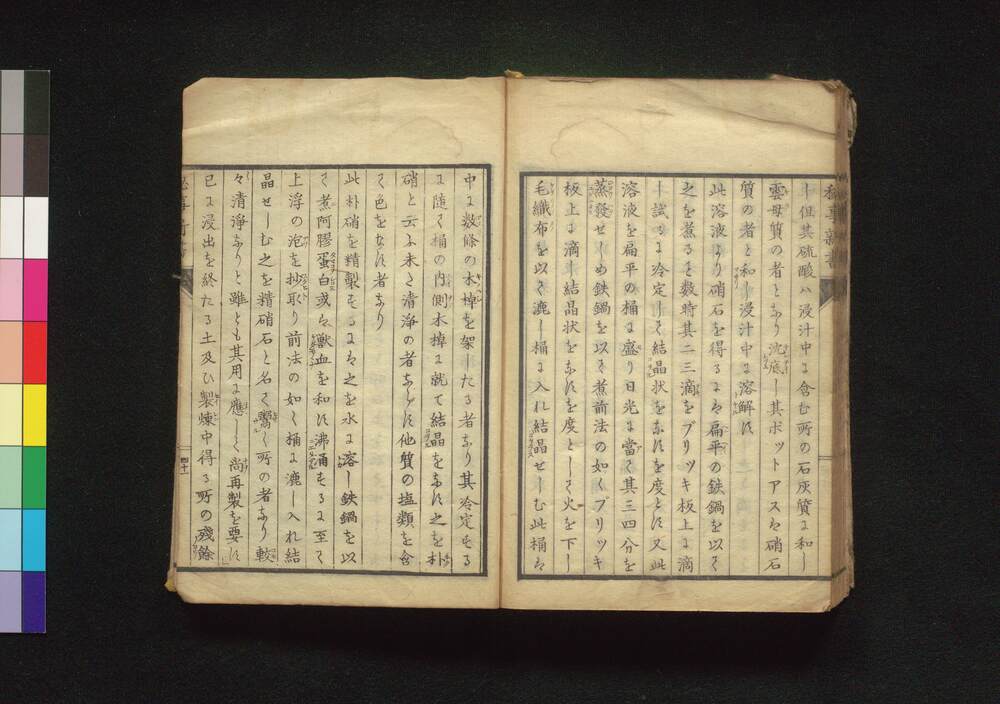 シ但其硫酸ハ浸汁中ニ含ム所ノ石灰質ニ和シ
雲母質ノ者トナリ沈底シ其ポットアスハ硝石
質ノ者ト和シ浸汁中ニ溶解ス
此溶液ヨリ硝石ヲ得ルニハ扁平ノ鉄鍋ヲ以テ
之ヲ煮ル丶数時其二三滴ヲブリッキ板上ニ滴
シ試ルニ冷定シテ結晶状ヲナスヲ度トス又此
溶液ヲ扁平ノ桶ニ盛リ日光ニ當テ其三四分ヲ
蒸發セシメ鉄鍋ヲ以テ煮前法ノ如クブリッキ
板上ニ滴シ結晶状ヲナスヲ度トシテ火ヲ下シ
毛織布ヲ以テ漉シ桶ニ入レ結晶セシム此桶ハ
中ニ数條ノ木棹ヲ架シタル者ナリ其冷定スル
ニ随テ桶ノ内側木棹ニ就テ結晶ヲナス之ヲ朴
硝ト云フ未タ清浄ノ者ナラス他質ノ塩類ヲ含
テ色ヲナス者ナリ
此朴硝ヲ精製スルニハ之ヲ水ニ溶シ鉄鍋ヲ以
テ煮阿膠蛋白或ハ獣血ヲ和ス沸涌スルニ至テ
上浮ノ泡ヲ抄取リ前法ノ如ク桶ニ漉シ入レ結
晶セシム之ヲ精硝石ト名ク鬻ク所ノ者ナリ較
々清浄ナリト雖トモ其用ニ應シテ尚再製ヲ要ス
已ニ浸出ヲ終タル土及ヒ製煉中得ル所ノ残餘
四十一